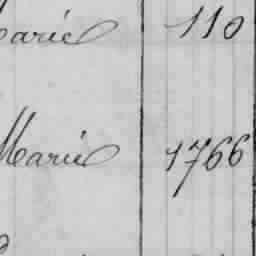 Marie 110
Marie 1766